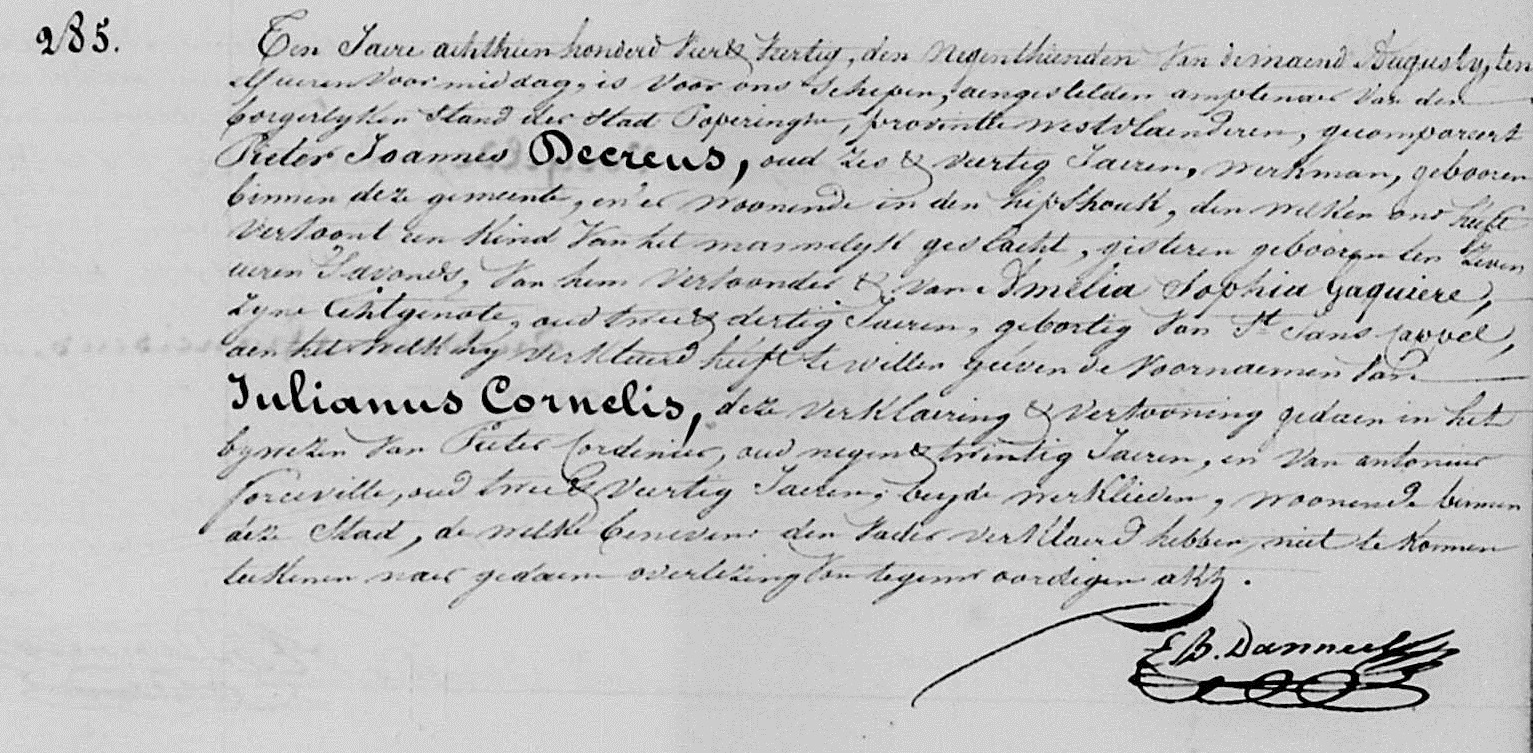 285.
Ten Jaere achthien honderd vier & veertig, den negenthienden van de maend Augusty, ten
elf ueren voormiddag, is voor ons Schepen, aengestelden amptenaer van den
borgerlyken Stand der Stad Poperinghe, provintie westvlaenderen, gecompareert
Pieter Joannes Decreus, oud zes & veertig Jaeren, werkman, gebooren
binnen deze gemeente, en er woonende in den hipshouk, den welken ons heeft
vertoont een kind van het mannelyk geslacht, gisteren gebooren ten zeven
ueren s'avonds, van hem vertoonder & van Amelia Sophia Gaquiere,
zyne Echtgenote, oud twee & dertig Jaeren, geboortig van St Jans Cappel,
aen het welk hy verklaerd heeft te willen geeven de voornaemen van
Julianus Cornelis, deze verklaering & vertooning gedaen in het
bywezen van Pieter Cordenier, oud negen & twintig Jaeren, en van antonius
Forceville, oud twee & veertig Jaeren, beyde werklieden, woonende binnen
deze Stad, de welke benevens den vader verklaerd hebben niet te konnen
teekenen naer gedaene overlezing van tegenwoordigen akt.